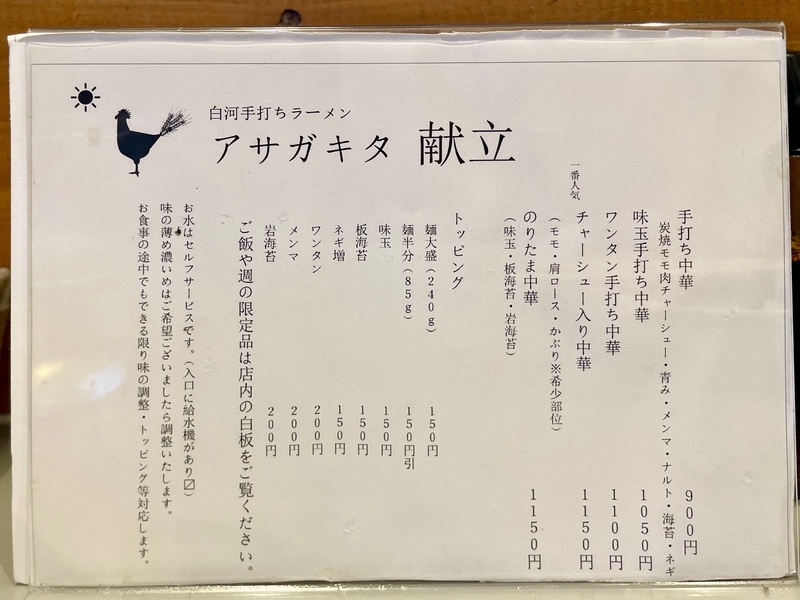 白河手打ちラーメン
アサガキタ 献立
手打ち中華 900円
炭焼モモ肉チャーシュー・青み・メンマ・ナルト・海苔・ネギ
味玉手打ち中華 1050円
ワンタン手打ち中華 1100円
一番人気
チャーシュー入り中華 1150円
(モモ・肩ロース・かぶり※希少部位)
のりたま中華 1150円
(味玉・板海苔・岩海苔)
トッピング
麺大盛(240g) 150円
麺半分(85g) 150円引
味玉 150円
板海苔 150円
ネギ増 150円
ワンタン 200円
メンマ 200円
岩海苔 200円
ご飯や週の限定品は店内の白板をご覧ください。
お水はセルフサービスです。(入口に給水機があり〼)
味の薄め濃いめはご希望ございましたら調整いたします。
お食事の途中でもできる限り味の調整・トッピング等対応します。